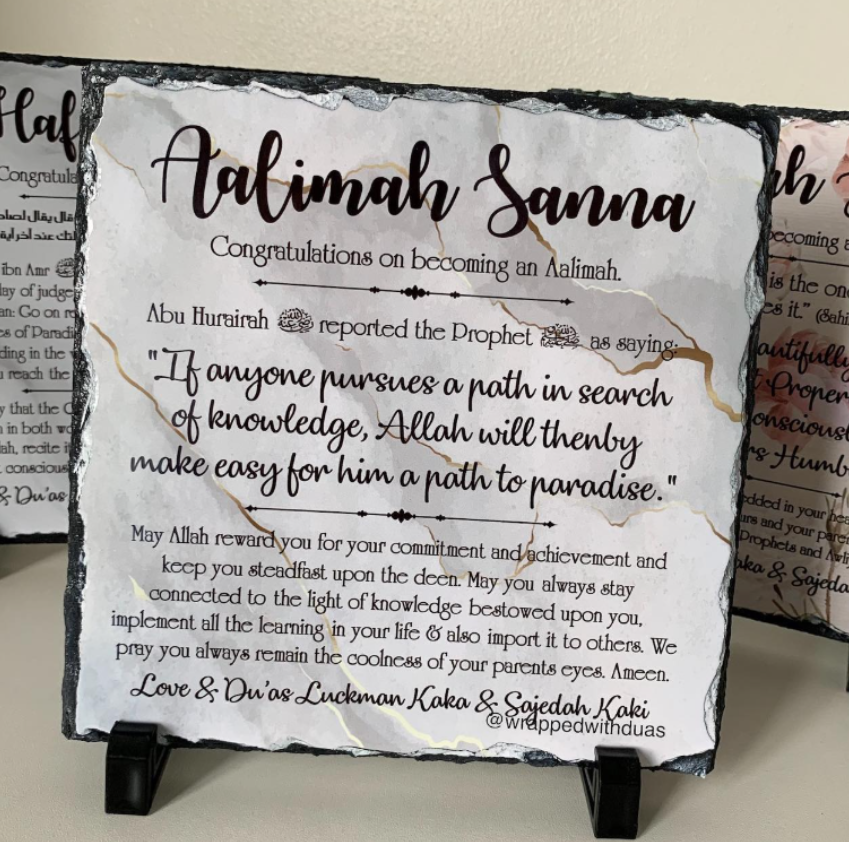 Aalimah Sanna
Congratulations on becoming an Aalimah.
Abu Hurairah ﷺ reported the Prophet ﷺ as saying:
"If anyone pursues a path in search
of knowledge, Allah will thenby
make easy for him a path to paradise."
May Allah reward you for your commitment and achievement and
keep you steadfast upon the deen. May you always stay
connected to the light of knowledge bestowed upon you,
implement all the learning in your life & also import it to others. We
pray you always remain the coolness of your parents eyes. Ameen.
Love & Du'as Luckman Kaka & Sajedah Kaki
@wrappedwithduas
Haf
Congratula
ibn Amr
lay of judge
an: Go on
es of Paradi
ding in the
reach the
y that the
in both
ah, recite
conscious
& Du'as
ah
becoming
is the on
es it." (Sahi
autifully
Proper
onscious
rs Humb
dded in your
and your paren
Prophets and
aka & Sajeda